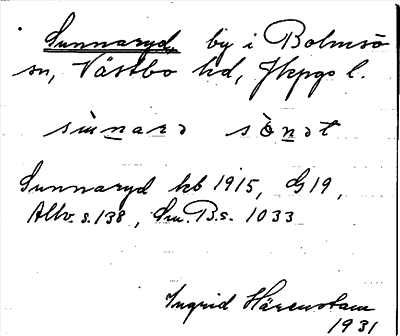 Sunnaryd, by i Bolmsö
sn, Västbo hd, Jkpgs l.
Sunnaryd kb 1915, G 19,
Allv. s. 138, Sm. B. s. 1033
Ingrid Härenstam
1931